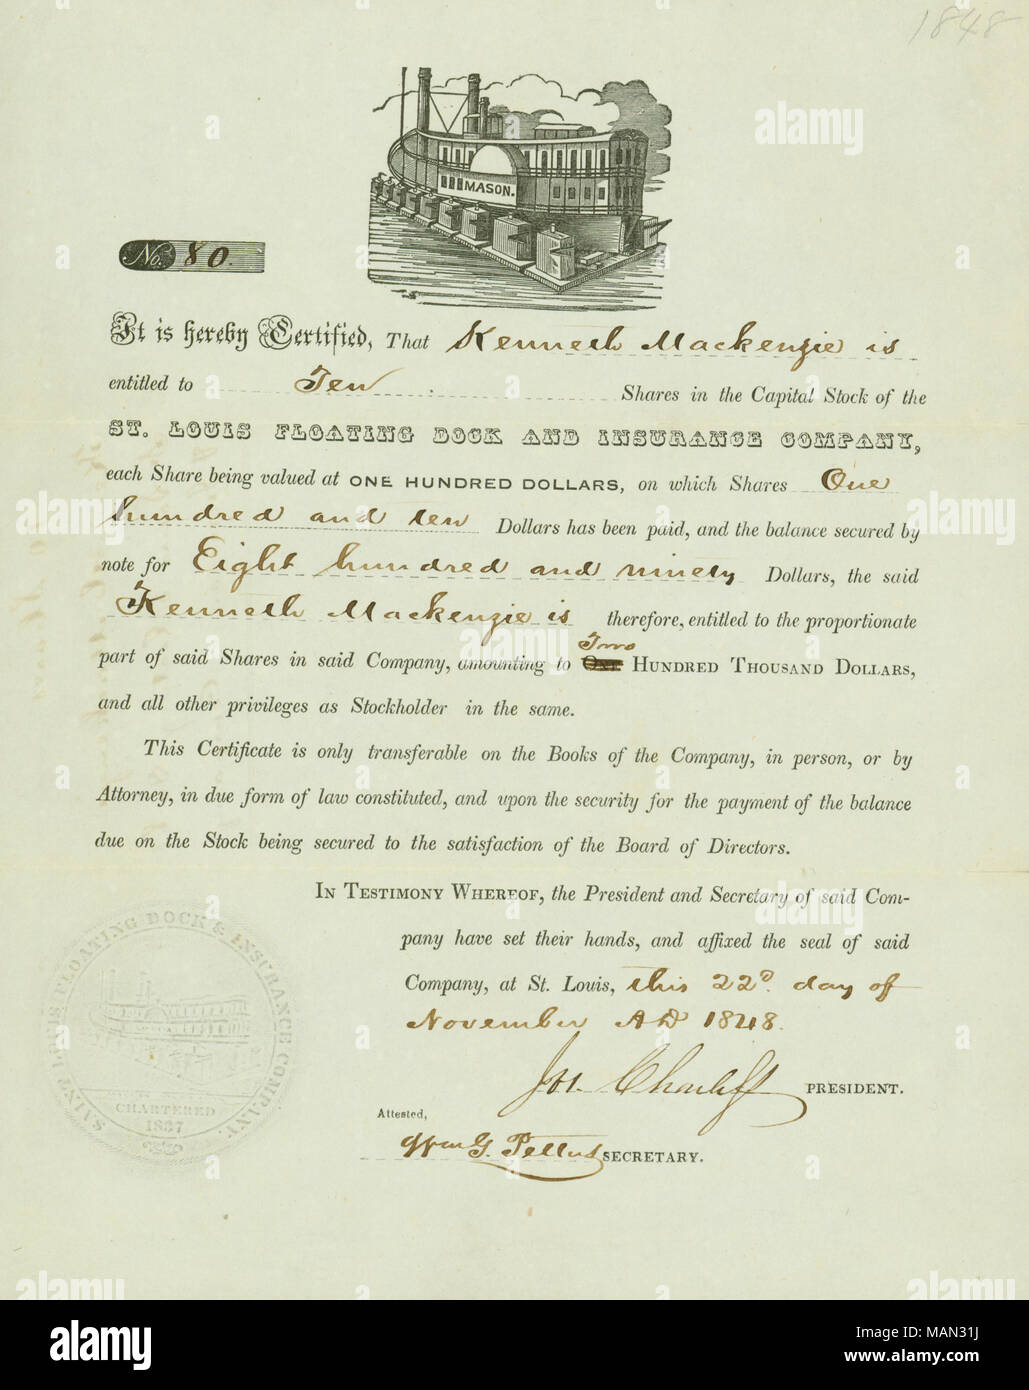 1848
MASON.
No. 80.
It is hereby Certified, That Kenneth Mackenzie is
entitled to Ten Shares in the Capital Stock of the
ST. LOUIS FLOATING DOCK AND INSURANCE COMPANY,
each Share being valued at ONE HUNDRED DOLLARS, on which Shares One
hundred and ten Dollars has been paid, and the balance secured by
note for Eight hundred and ninety Dollars, the said
Kenneth Mackenzie is therefore, entitled to the proportionate
Two
part of said Shares in said Company, amounting to ONE HUNDRED THOUSAND DOLLARS,
and all other privileges as Stockholder in the same.
This Certificate is only transferable on the Books of the Company, in person, or by
Attorney, in due form of law constituted, and upon the security for the payment of the balance
due on the Stock being secured to the satisfaction of the Board of Directors.
IN TESTIMONY WHEREOF, the President and Secretary of said Com-
pany have set their hands, and affixed the seal of said
Company, at St. Louis, this 22d. day of
November AD 1848.
Jos. Charless PRESIDENT.
Attested,
Wm G. Pettus SECRETARY.
SAINT LOUIS FLOATING DOCK & INSURANCE COMPANY.
CHARTERED
1837
alamy
Image ID: MAN31J
www.alamy.com